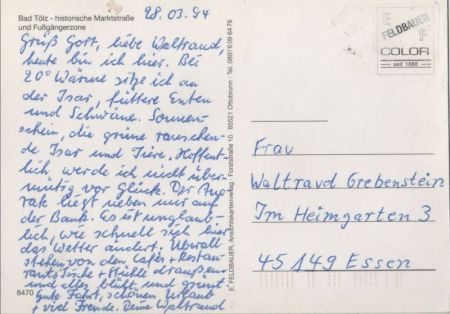 28.03.94
Bad Tölz - historische Marktstraße
und Fußgängerzone
Gruß Gott, liebe Waltraud,
heute bin ich hier. Bei
20° Wärme sitze ich an
der Isar, füttere Enten
und Schwäne. Sonnen-
schein, die grüne rauschen-
de Isar und Tiere. Hoffent-
lich, werde ich nicht über-
mütig vor Glück. Der Ano-
rak liegt neben mir auf
der Bank. Es ist unglaub-
lich, wie schnell sich hier
das Wetter ändert. Überall
stehen vor den Cafés + Restau-
rants Tische + Stühle draußen
und alles blüht und grünt.
Gute Fahrt, schönen Urlaub
+ viel Freude. Deine Waltraud
8470
E. FELDBAUER, Ansichtskartenverlag · Forststraße 10 · 85521 Ottobrunn · Tel. 089/6 09 64 76
FELDBAUER
COLOR
seit 1886
Frau
Waltraud Grebenstein
Im Heimgarten 3
45149 Essen